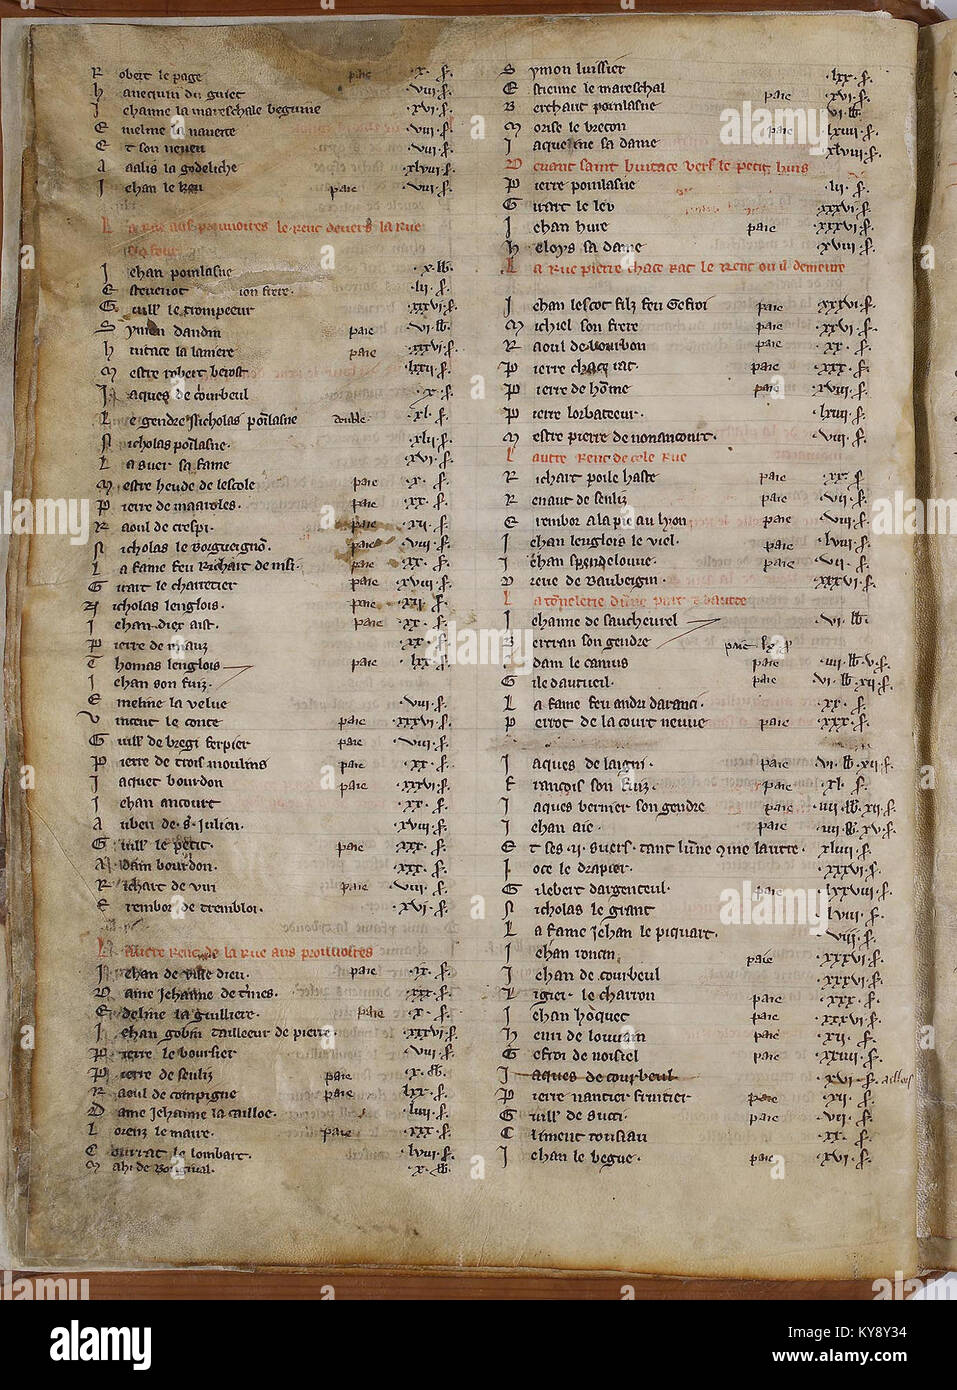 R obert le page paie .x. s.
h anequin du guiet .viii. s.
J ehanne la mareschale beguine .xvi. s.
E melme la nauete .viii. s.
E t son neueu .viii. s.
A aalis la godeliche .xlviii s.
J ehan le keu paie .viii. s.
L a Rue aus prouuoires le Renc deuers la Rue
du four
J ehan pointlasne .x. lb.
E steuenot son frere. .lii. s.
G uill' le trompeeur .xxxvi. s.
S ymon dandin paie .vi lb.
h uitace la laniere paie .xxxvi. s.
M estre robert berost .lxxii. s.
J aques de corbeul .x. s.
L e gendre Nicholas pointlasne double. .xl. s.
N icholas pointlasne. .xlii. s.
L a suer sa fame .xvi. s.
M estre heude de lescole paie .x. s.
P ierre de maaroles. paie .xx. s.
R aoul de crespi. paie .xii. s.
N icholas le borgueignon. paie .viii. s.
L a fame feu Richart de paie .xx. s.
G irart le charretier paie .xviii. s.
N icholas lenglois. paie .xii. s.
J ehan diex aist. paie .xx. s.
P ierre de miauz .xx. s.
T homas lenglois paie .lxx. s.
J ehan son fuiz.
E melme la velue .viii. s.
V incent le conte paie .xxxvi. s.
G uill' de bregi ferpier paie .viii. s.
P ierre de trois moulins paie .xx. s.
J aquet bourdon paie .xxxvi. s.
J ehan ancourt .xx. s.
A uberi de .S. Julien. .xviii. s.
G uill' le petit. paie .xxx. s.
A dam bourdon. .xxx. s.
R ichart de viri paie .viii. s.
E rembor de trembloi. .xvi. s.
L autre Renc de la Rue aus prouuoires
J ehan de ville dieu. paie .ix. s.
D ame Jehanne de times. .xxx. s.
E deline la guilliere. paie .x. s.
J ehan gobin tailleeur de pierre. .xxxvi. s.
P ierre le boursier .viii. s.
P ierre de senliz paie .x. lb.
R aoul de compigne paie .lxx. s.
D ame Jehanne la tailloe. .liiii. s.
L orenz le maire. paie .xxx. s.
C ourrat le lombart. .lviii. s.
M ahi de .x. lb.
S ymon luissier .lxx. s.
E stienne le mareschal paie .xvi. s.
B erthaut pointlasne .vi. lb.
M orise le breton paie .lxiiii. s.
J aqueline sa dame .xlviii. s.
D euant saint huitace vers le petit huis
P ierre pointlasne .lii. s.
G irart le leu .xxxvi. s.
J ehan huie paie .xxxvi. s.
h eloys sa dame .xviii. s.
L a Rue pierre chace rat le Renc ou il demeure
J ehan lescot filz feu Gefroi paie .xxxvi. s.
M ichiel son frere paie .xxvi. s.
R aoul de bourbon paie .xx. s.
P ierre chace rat paie .xxx. s.
P ierre de homme paie .xviii. s.
P ierre lorbateeur. .lxiiii. s.
M estre pierre de nonancourt. .viii. s.
L autre Renc de cele Rue
R ichart poile haste paie .xx. s.
R enaut de senliz paie .vii. s.
E rembor a la pie au lyon paie .viii. s.
J ehan lenglois le viel. paie .lviii. s.
J ehan spendeloune. paie .vii. s.
D reue de baubeigni. .xxxvi. s.
L a tonnelerie dune part et dautre
J ehanne de saucheurel .vi. lb.
B ertran son gendre paie lx s
A dam le camus paie .iiii. lb. v. s.
G ile dautueil. paie .vi. lb. xii. s.
L a fame feu andri daranci. .xx. s.
P errot de la court neuue paie .xxx. s.
J aques de laigni. paie .vi. lb. xii. s.
F rançois son fuiz. paie .xl. s.
J aques bernier son gendre paie .iiii. lb. xii. s.
J ehan aie. paie .iiii. lb. xv. s.
E t ses .ii. suers. tant lune que lautre. .xliiii. s.
J oce le drapier. .xxxvi. s.
G ilebert dargenteul. paie .lxxviii. s.
N icholas le grant .lviii. s.
L a fame Jehan le piquart. .viii. s.
J ehan roncin paie .xxxvi. s.
J ehan de courbeul .xxxvi. s.
L igier le charron paie .xxx. s.
J ehan hoquet paie .xxxvi. s.
h enri de louuain paie .xii. s.
G efroi de noisiel paie .xxiiii. s.
J aques de courbeul .xvi. s. aillors
P ierre nantier fruitier paie .xii. s.
G uill' de suci. paie .vii. s.
C liment rousiau .xx. s.
J ehan le begue. paie .xvi. s.
alamy
Image ID: KY8Y34
www.alamy.com